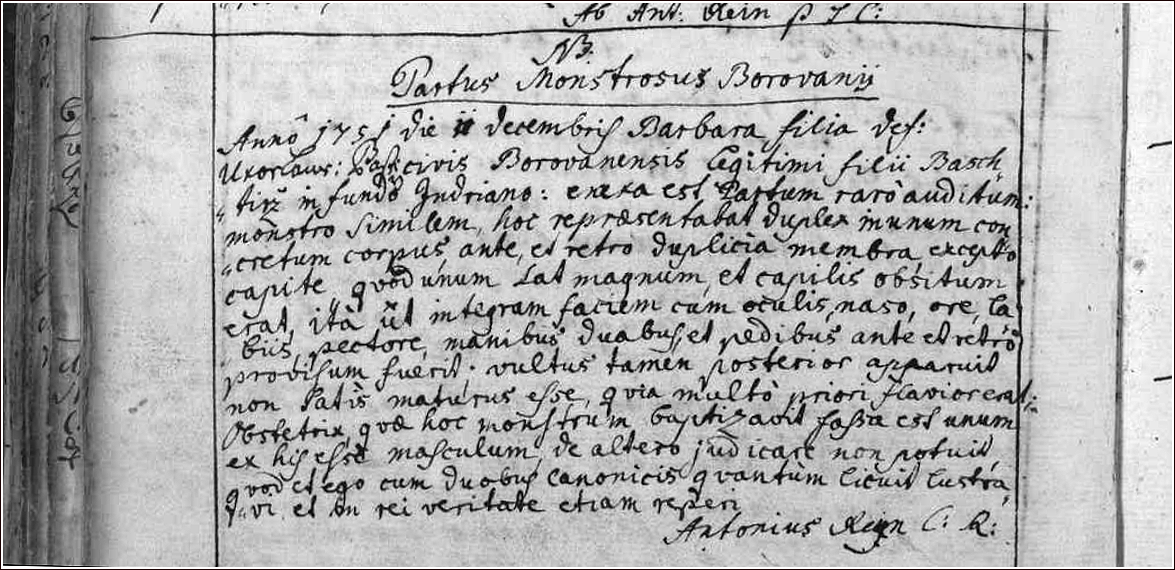 Ab Ant: Rein p J C:
NB.
Partus Monstrosus Borovanij
Annô 1751 die 11 decembris Barbara filia def:
civis Borovanensis legitimi filii Basch
tirz in fundô Indriano: enexa est Partum rarò auditum:
monstro similem, hoc repræsentabat duplex in unum con
cretum corpus ante, et retro duplicia membra, excepto
capite quod unum sat magnum, et capilis obsitum
erat, ità ut integram faciem cum oculis, naso, ore, la
biis, pectore, manibus duabus, et pedibus ante et retrò
provisum fuerit. vultus tamen posterior apparuit
non satis maturus esse, quia multò priori flavior erat:
Obstetrix, quæ hoc monstrum baptizavit fassa est unum
ex his esse masculum, de altero judicare non potuit,
quod et ego cum duobus canonicis quantùm licuit lustra
vi et in rei veritate etiam reperi
Antonius Rein C: R: